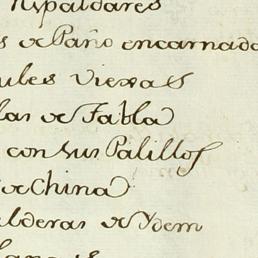 Espaldares
s de Paño encarnado
ules Viexas
las de Tabla
con sus Palillos
de China
alderas de Ydem